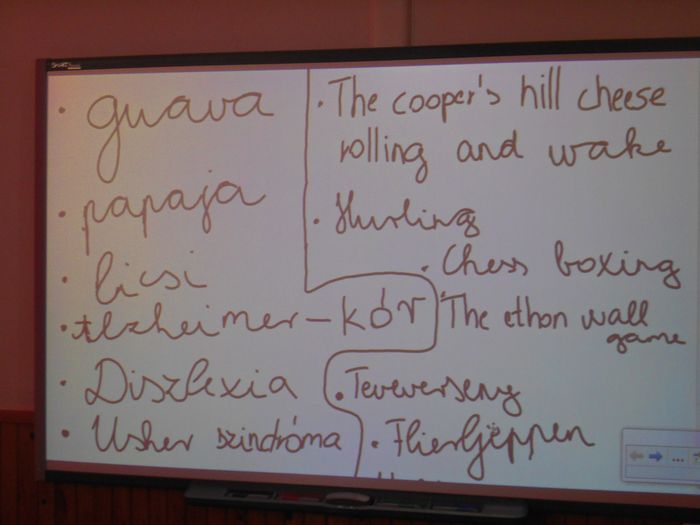 SMART Board
• guava
• papaja
• licsi
• Alzheimer-kór
• Diszlexia
• Usher szindróma
• The cooper's hill cheese
rolling and wake
• Hurling
• Chess boxing
• The ethon wall
game
• Teveverseny
• Flierljeppen